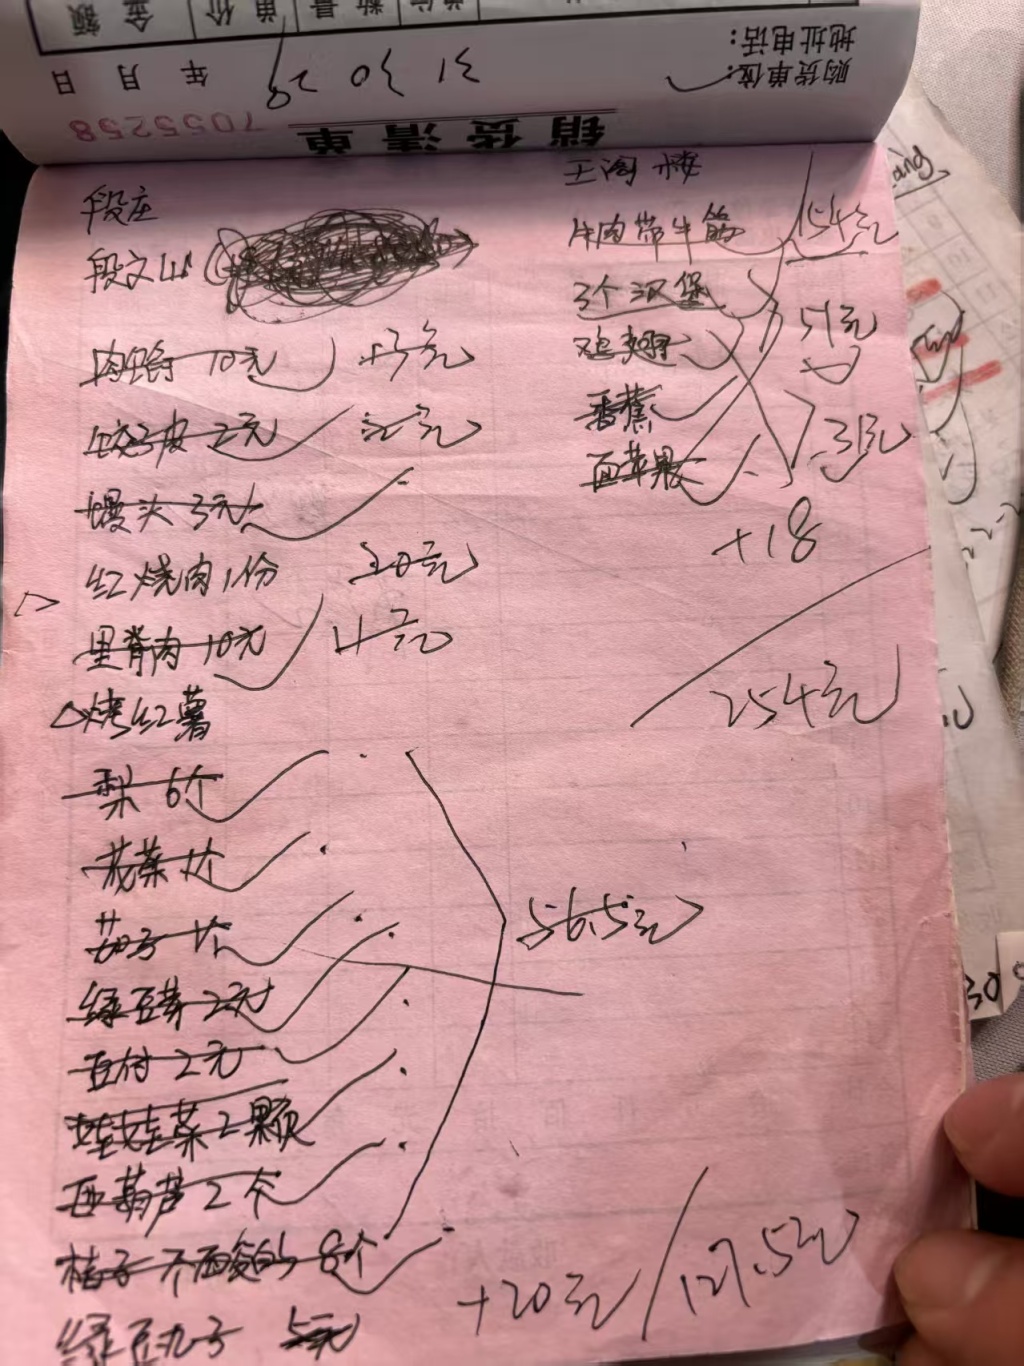 金额
单价
数量
单位
地址电话：
购货单位：
31 30 29
年 月 日
销货清单
7055258
段庄
段文山
肉 10元
饺子皮 2元
馒头 3元
红烧肉1份 20元
里脊肉 10元 4元
烤红薯
梨 6个
花菜 1个
茄子 1个
绿豆芽 2元
豆付 2元
娃娃菜 2颗
西葫芦 2个
桔子 不面酸的 8个
绿豆丸子 5元
56.5元
+20元
127.5元
王阁楼
牛肉带牛筋 154元
3个汉堡
鸡翅 51元
香蕉
面苹果 31元
+18
254元
30